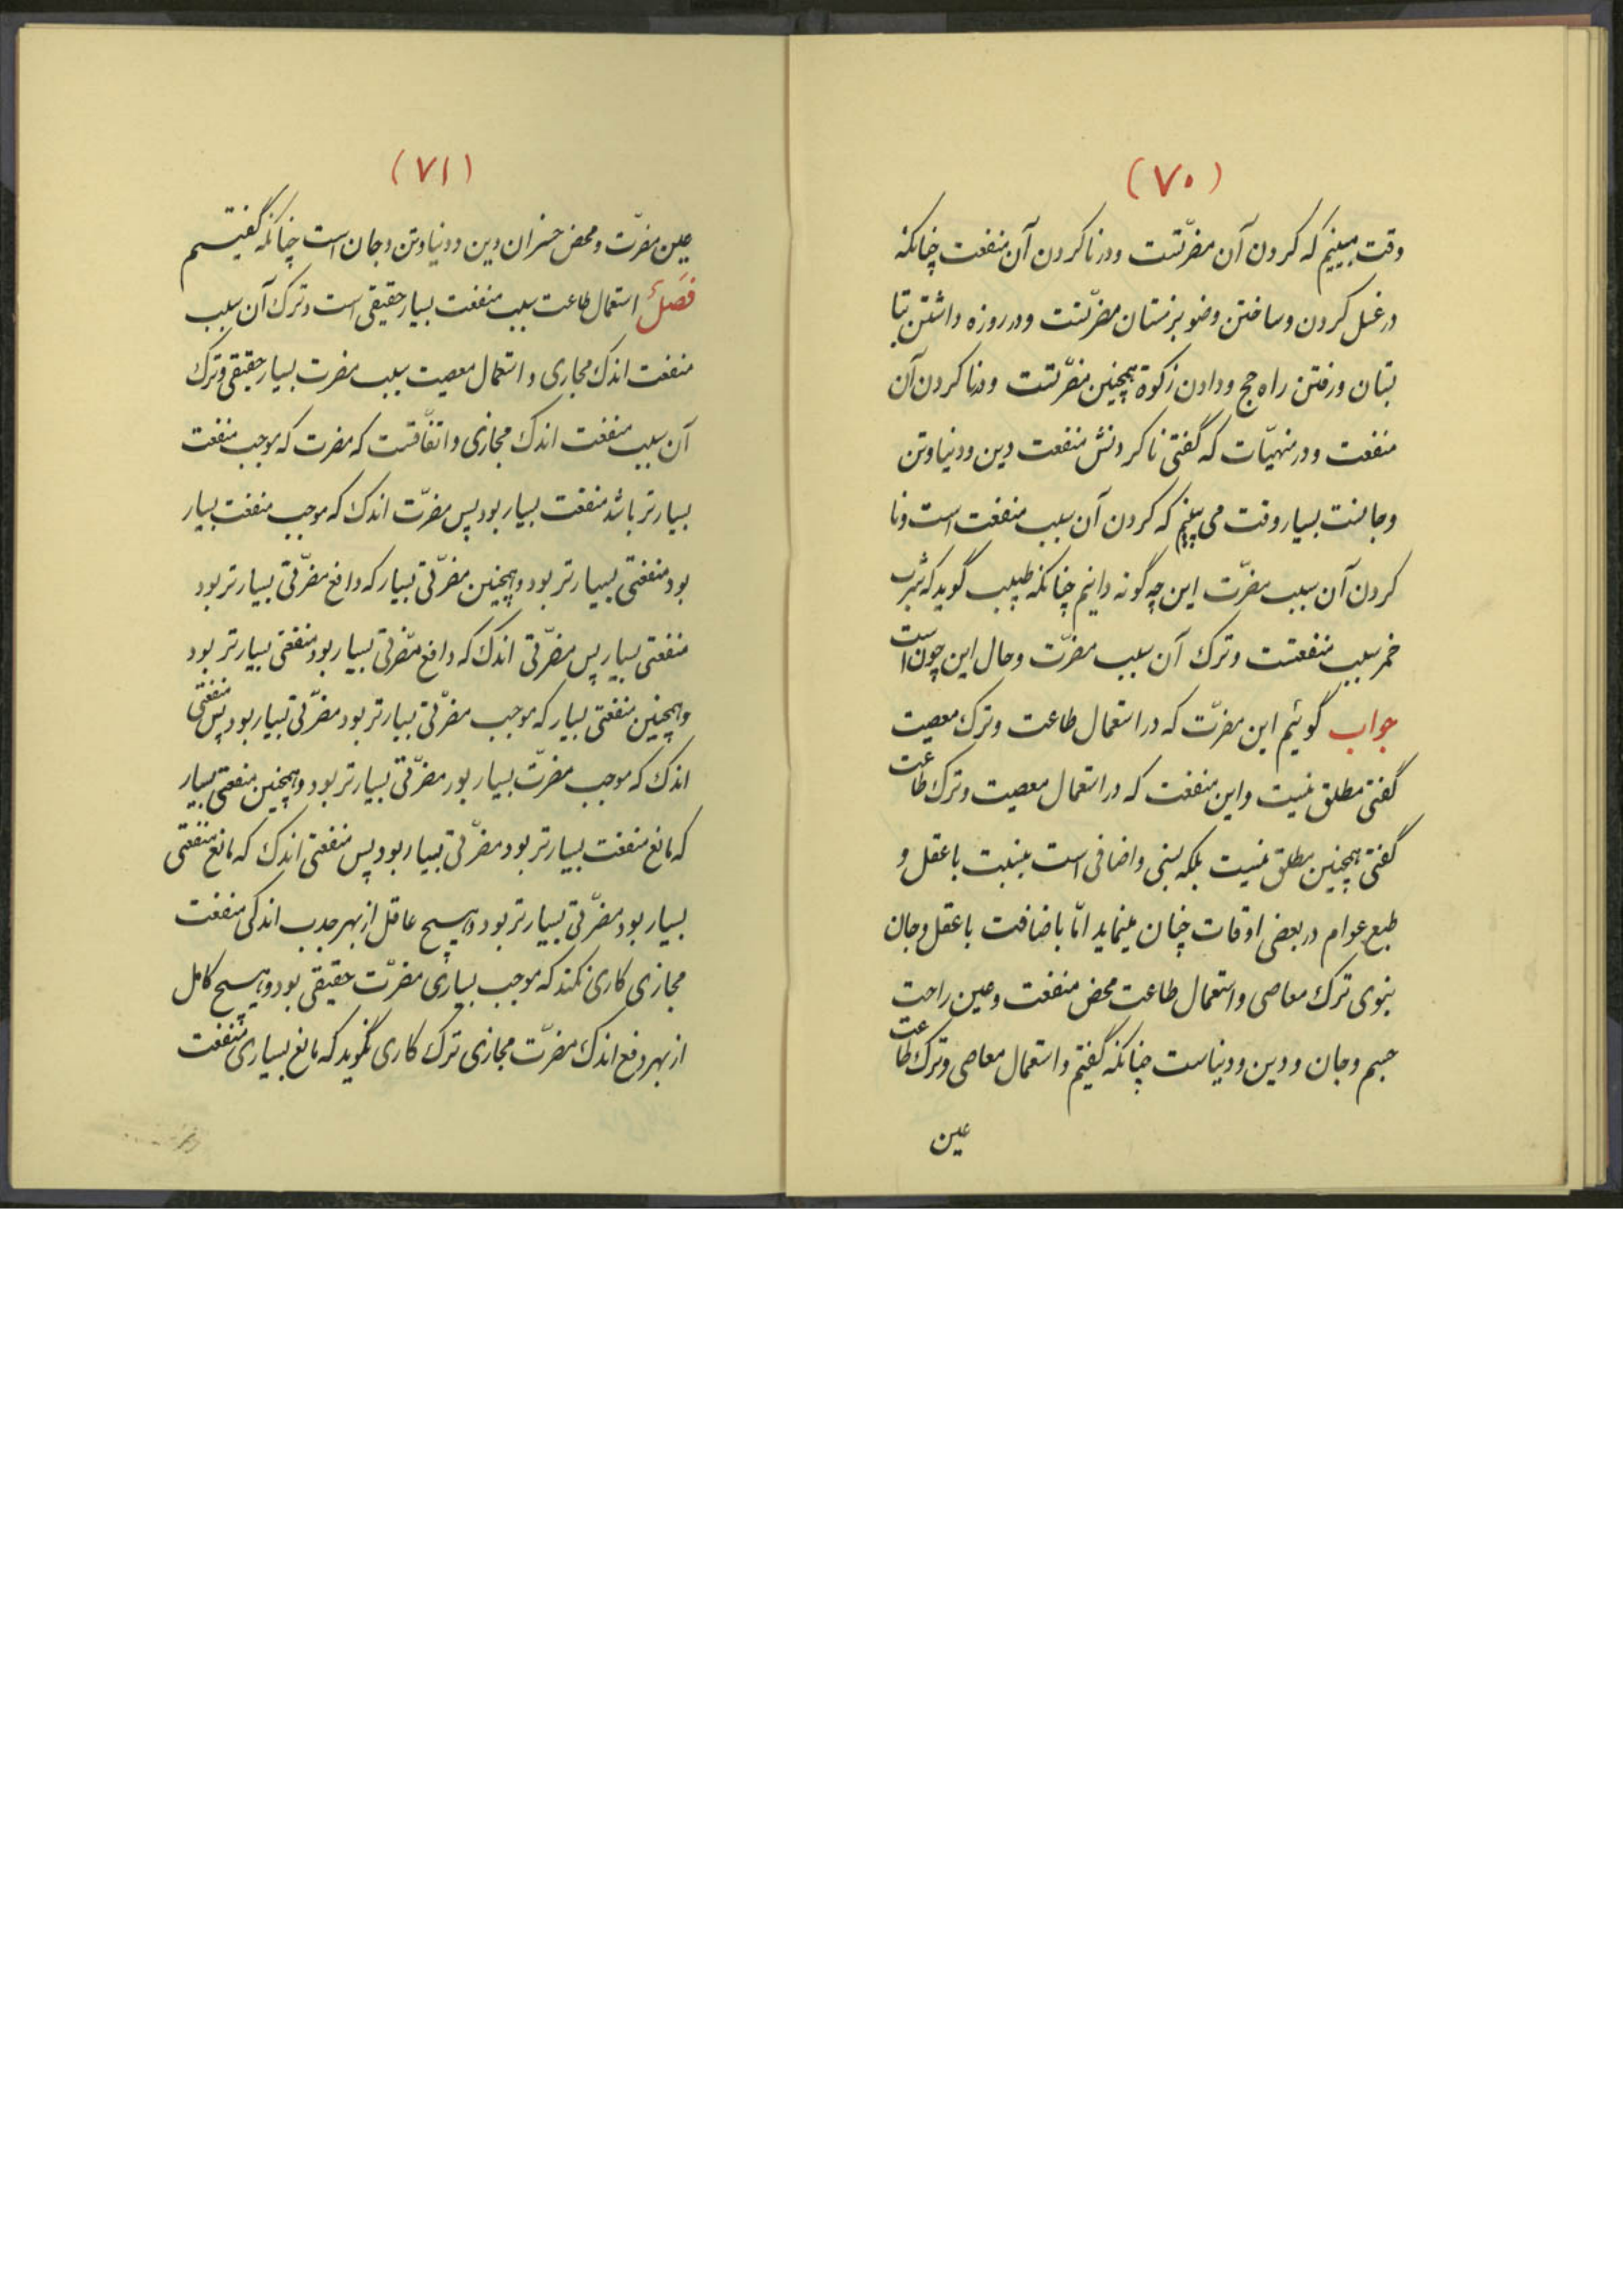 (۷۰)
وقت ببینیم که کردن آن مضرّتست و در ناکردن آن منفعت چنانکه
در غسل کردن و ساختن وضو بزمستان مضرّتست و در روزه داشتن بتا
بتان و رفتن راه حج و دادن زکوة همچنین مضرّتست و در ناکردن آن
منفعت و در منهیّات که گفتی ناکردنش منفعت دین و دنیا و تن
و جانست بسیار وقت می بینیم که کردن آن سبب منفعت است و نا
کردن آن سبب مضرّت این چه گونه دانیم چنانکه طبیب گوید که شرب
خمر سبب منفعتست و ترک آن سبب مضرّت و حال این چون است
جواب گوئیم این مضرّت که در استعمال طاعت و ترک معصیت
گفتی مطلق نیست و این منفعت که در استعمال معصیت و ترک طاعت
گفتی همچنین مطلق نیست بلکه نسبی و اضافی است بنسبت با عقل و
طبع عوام در بعضی اوقات چنان مینماید امّا باضافت با عقل و جان
نبوی ترک معاصی و استعمال طاعت محض منفعت و عین راحت
جسم و جان و دین و دنیاست چنانکه گفتیم و استعمال معاصی و ترک طاعت
عین
(۷۱)
عین مضرّت و محض خسران دین و دنیا و تن و جان است چنانکه گفتیم
فصل استعمال طاعت سبب منفعت بسیار حقیقی است و ترک آن سبب
منفعت اندک مجازی و استعمال معصیت سبب مضرت بسیار حقیقی و ترک
آن سبب منفعت اندک مجازی و اتفّاقست که مضرت که موجب منفعت
بسیارتر باشد منفعت بسیار بود پس مضرّت اندک که موجب منفعت بسیار
بود منفعتی بسیارتر بود و همچنین مضرّتی بسیار که دافع مضرّتی بسیارتر بود
منفعتی بسیار پس مضرّتی اندک که دافع مضرّتی بسیار بود منفعتی بسیارتر بود
و همچنین منفعتی بسیار که موجب مضرّتی بسیارتر بود مضرّتی بسیار بود پس منفعتی
اندک که موجب مضرتّ بسیار بود مضرّتی بسیارتر بود و همچنین منفعتی بسیار
که مانع منفعت بسیارتر بود مضرّتی بسیار بود پس منفعتی اندک که مانع منفعتی
بسیار بود مضرّتی بسیارتر بود و هیچ عاقل از بهر جذب اندکی منفعت
مجازی کاری نکند که موجب بسیاری مضرّت حقیقی بود و هیچ کامل
از بهر دفع اندک مضرّت مجازی ترک کاری نگوید که مانع بسیاری منفعت